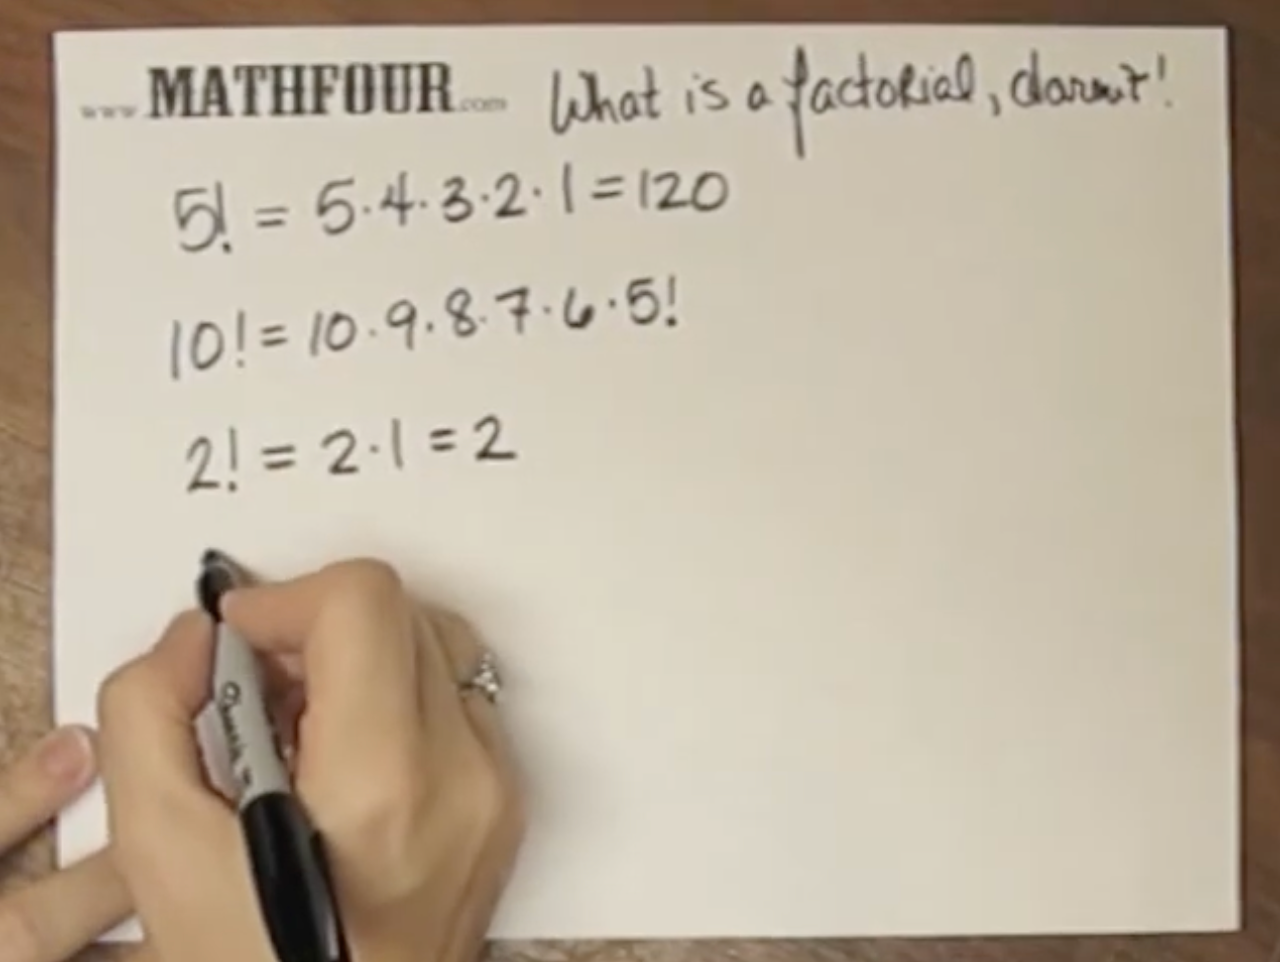 www.MATHFOUR.com What is a factorial, darnit!
5! = 5·4·3·2·1 = 120
10! = 10·9·8·7·6·5!
2! = 2·1 = 2
Sharpie